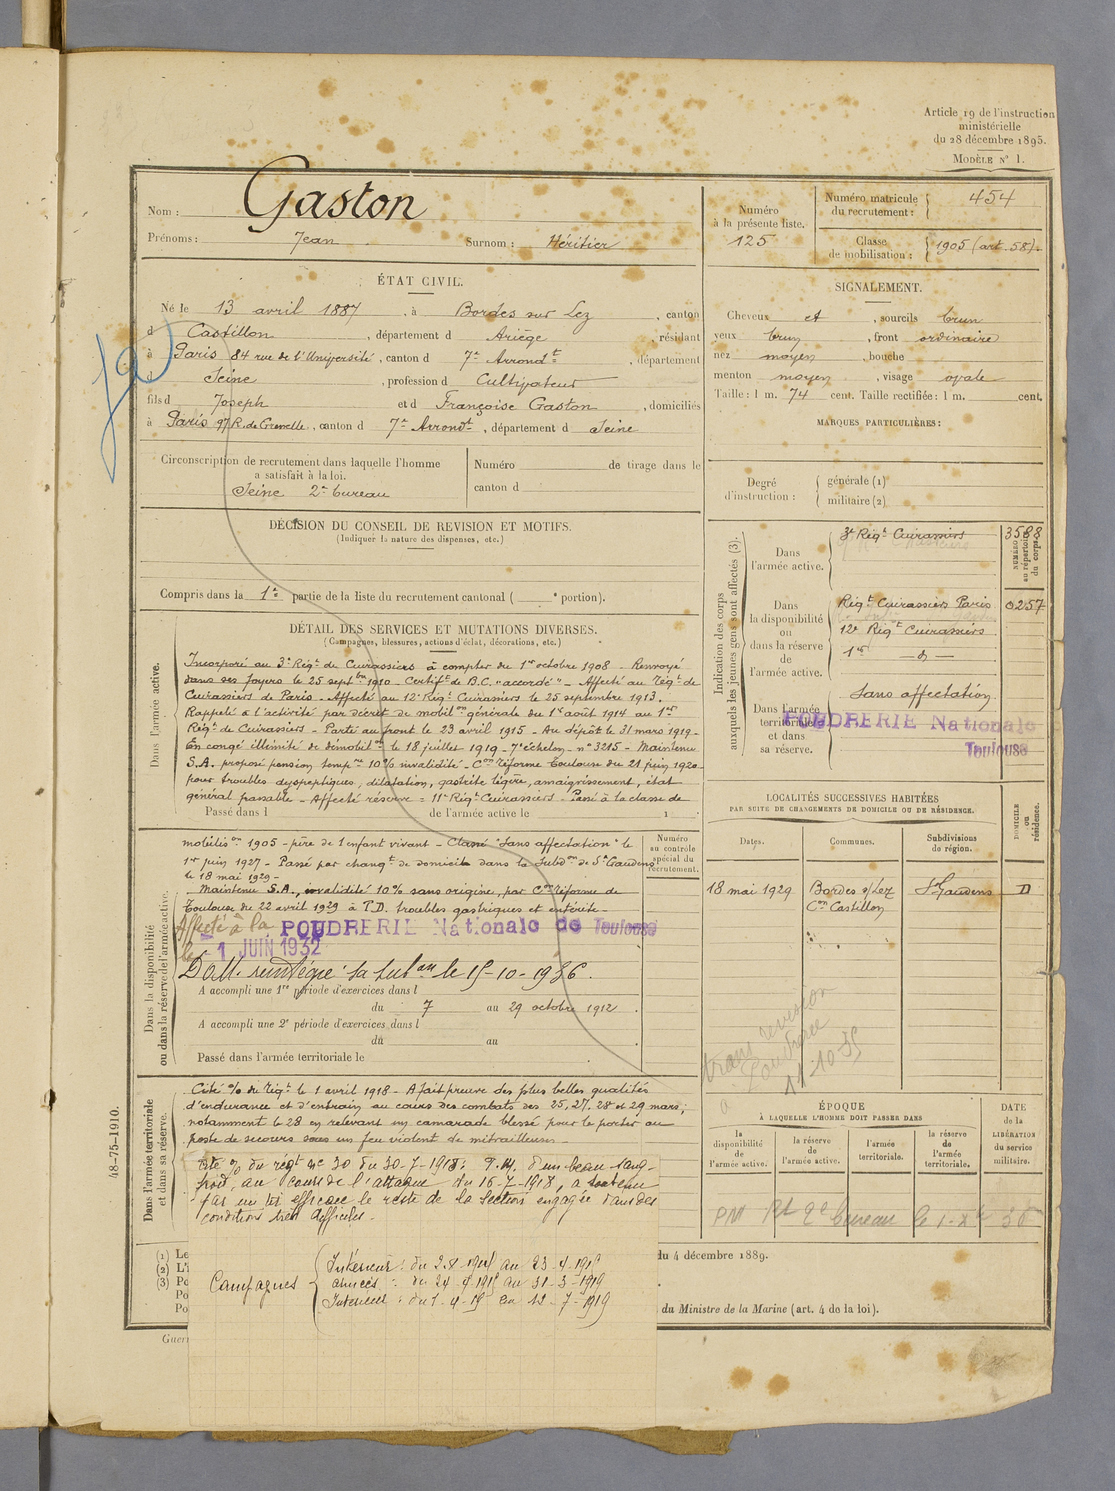 Article 19 de l'instruction
ministérielle
du 28 décembre 1895.
MODÈLE N° 1.
Nom : Gaston
Prénoms : Jean Surnom : Héritier
Numéro
à la présente liste.
125
Numéro matricule
du recrutement : 454
Classe
de mobilisation : 1905 (art. 58).
ÉTAT CIVIL.
Né le 13 avril 1887, à Bordes sur Lez, canton
d Castillon, département d Ariège, résidant
à Paris 84 rue de l'Université, canton d 7e Arrondt, département
d Seine, profession d Cultivateur
fils d Joseph et d Françoise Gaston, domiciliés
à Paris 97 R. de Grenelle, canton d 7e Arrondt, département d Seine
Circonscription de recrutement dans laquelle l'homme
a satisfait à la loi.
Seine 2e bureau
Numéro de tirage dans le
canton d
SIGNALEMENT.
Cheveux et, sourcils brun
yeux brun, front ordinaire
nez moyen, bouche
menton moyen, visage ovale
Taille : 1 m. 74 cent. Taille rectifiée : 1 m. cent.
MARQUES PARTICULIÈRES :
Degré
d'instruction :
générale (1)
militaire (2)
DÉCISION DU CONSEIL DE REVISION ET MOTIFS.
(Indiquer la nature des dispenses, etc.)
Compris dans la 1re partie de la liste du recrutement cantonal ( e portion).
DÉTAIL DES SERVICES ET MUTATIONS DIVERSES.
(Campagnes, blessures, actions d'éclat, décorations, etc.)
Dans l'armée active.
Incorporé au 3e Régt de Cuirassiers à compter du 1er octobre 1908 - Renvoyé
dans ses foyers le 25 septbre 1910 - Certift de B.C. "accordé" - Affecté au Régt de
Cuirassiers de Paris - Affecté au 12e Régt Cuirassiers le 25 septembre 1913.
Rappelé à l'activité par décret de mobilon générale du 1er août 1914 au 1er
Régt de Cuirassiers - Parti au front le 23 avril 1915 - Au dépôt le 31 mars 1919 -
En congé illimité de démobilon le 18 juillet 1919 - 7e échelon - n° 3215 - Maintenu
S.A. proposé pension tempre 10% invalidité - Con réforme Toulouse du 21 juin 1920
pour troubles dyspeptiques, dilatation, gastrite légère, amaigrissement, état
général passable - Affecté réserve = 11e Régt Cuirassiers - Passé à la classe de
Passé dans l de l'armée active le 1
mobilison 1905 - père de 1 enfant vivant - Classé "Sans affectation" le
1er juin 1927 - Passé par changt de domicile dans la Subdon de St Gaudens
le 18 mai 1929 -
Maintenu S.A., invalidité 10% sans origine, par Con réforme de
Toulouse du 22 avril 1929 à P.D. troubles gastriques et entérite -
Affecté à la POUDRERIE Nationale de Toulouse
le 1 JUIN 1932
le 15-10-1936.
Numéro
au contrôle
spécial du
recrutement.
Dans la disponibilité
ou dans la réserve de l'armée active.
A accompli une 1re période d'exercices dans l
du 7 au 29 octobre 1912
A accompli une 2e période d'exercices dans l
du au
Passé dans l'armée territoriale le
Dans l'armée territoriale
et dans sa réserve.
Cité % du Régt le 1 avril 1918 - A fait preuve des plus belles qualités
d'endurance et d'entrain au cours des combats des 25, 27, 28 et 29 mars ;
notamment le 28 en relevant un camarade blessé pour le porter au
poste de secours sous un feu violent de mitrailleuses -
Cité % du régt n° 30 du 30-7-1918 : F.M. d'un beau sang-
froid, au cours de l'attaque du 16-7-1918, a soutenu
par un tir efficace le reste de la Section engagée dans des
conditions très difficiles.
Campagnes
Intérieur : du 2.8.1914 au 23-4-1915
armées : du 24-4-1915 au 31-3-1919
Intérieur : du 1-4-19 au 12-7-1919
Indication des corps
auxquels les jeunes gens sont affectés (3).
Dans
l'armée active.
3e Régt Cuirassiers
3588
NUMÉRO
au répertoire
du corps.
Dans
la disponibilité
ou
dans la réserve
de
l'armée active.
Régt Cuirassiers Paris 0257
12e Régt Cuirassiers
1er — d —
Dans l'armée
territoriale
et dans
sa réserve.
Sans affectation
POUDRERIE Nationale
Toulouse
LOCALITÉS SUCCESSIVES HABITÉES
PAR SUITE DE CHANGEMENTS DE DOMICILE OU DE RÉSIDENCE.
Dates. Communes. Subdivisions
de région.
DOMICILE
ou
résidence.
18 mai 1929 Bordes s/ Lez St Gaudens D
Con Castillon
11-10-35
ÉPOQUE
À LAQUELLE L'HOMME DOIT PASSER DANS
la
disponibilité
de
l'armée active.
la réserve
de
l'armée active.
l'armée
territoriale.
la réserve
de
l'armée
territoriale.
DATE
de la
LIBÉRATION
du service
militaire.
48-75-1910.
(1) Le
(2) L'i
(3) Po
Po
Po
du 4 décembre 1889.
du Ministre de la Marine (art. 4 de la loi).
Guer